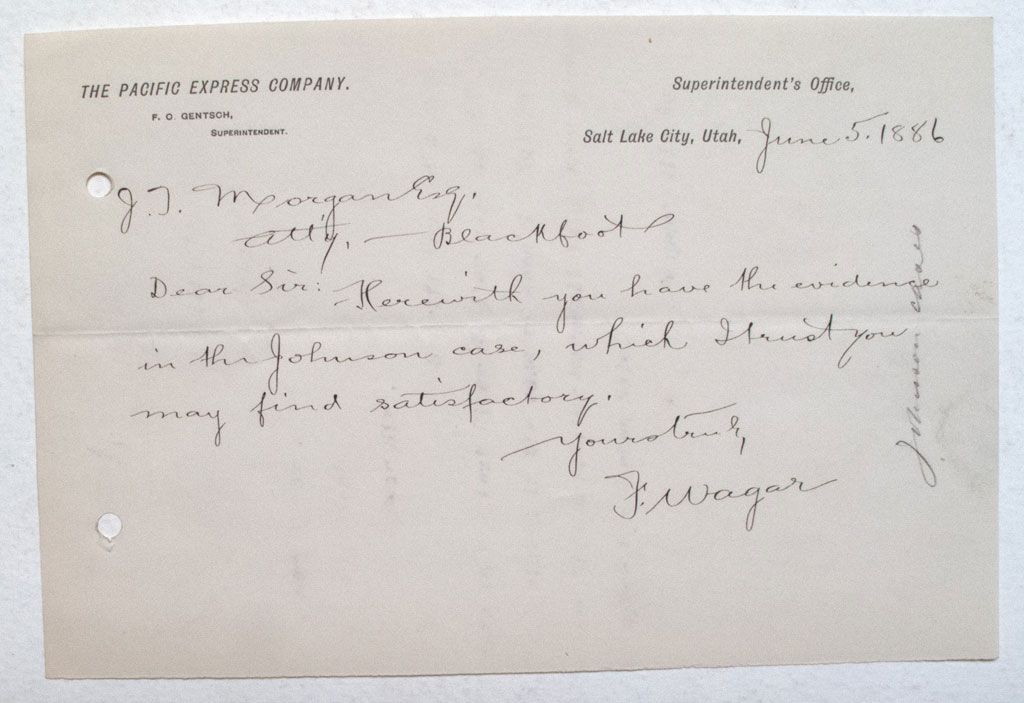 THE PACIFIC EXPRESS COMPANY.
F. O. GENTSCH,
SUPERINTENDENT.
Superintendent's Office,
Salt Lake City, Utah, June 5. 1886
J. T. Morgan Esq.
Att'y, — Blackfoot
Dear Sir: Herewith you have the evidence
in the Johnson case, which I trust you
may find satisfactory.
Yours truly,
F. Wagar
Johnson case